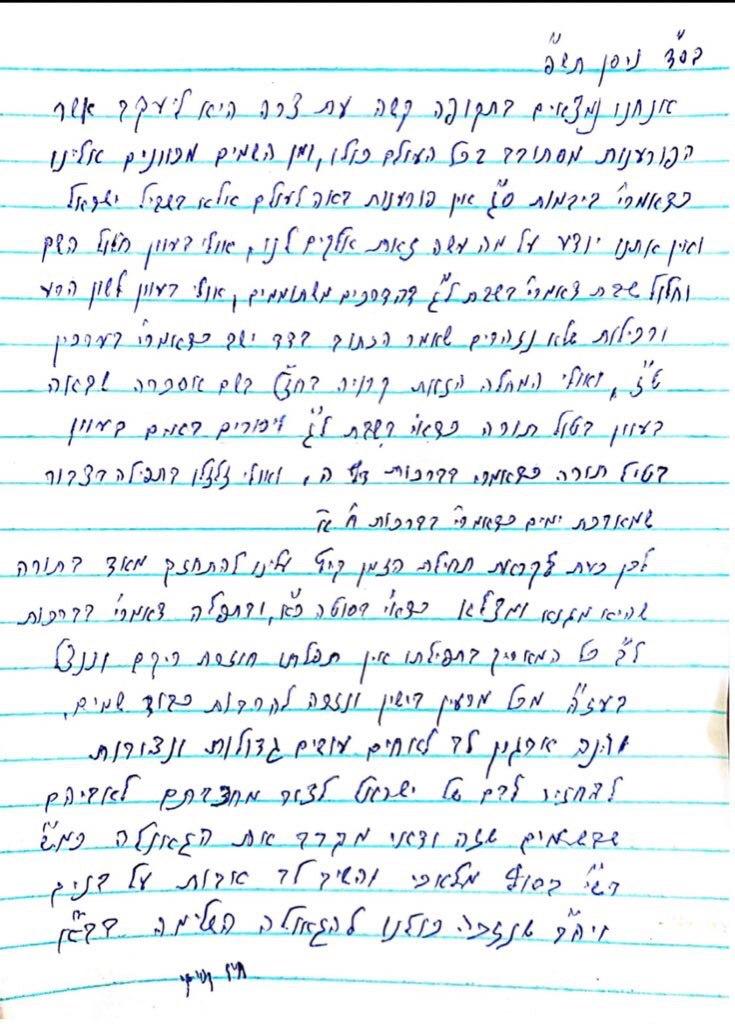 בס"ד ניסן תש"פ
אנחנו נמצאים בתקופה קשה עת צרה היא ליעקב אשר
הפורענות מסתובב בכל העולם כולו, ומן השמים מכוונים אלינו
כדאמרי' ביבמות ס"ג אין פורענות באה לעולם אלא בשביל ישראל
ואין אתנו יודע על מה עשה זאת אלקים לנו, אולי בעוון חלול השם
וחלול שבת דאמרי' בשבת ל"ג דהדרכים משתוממים, אולי בעוון לשון הרע
ורכילות שלא נזהרים שאמר הכתוב בדד ישב כדאמרי' בערכין
ט"ז, ואולי המחלה הזאת קרויה בחז"ל בשם אסכרה שבאה
בעוון בטול תורה כדאי' בשבת ל"ג ציבורים באמם בעוון
בטול תורה כדאמרי' בברכות דף ה', ואולי זלזלו בתפילה בצבור
שמארכת ימים כדאמרי' בברכות ח' א'
לכן כעת לקראת תחילת הזמן קיץ עלינו להתחזק מאד בתורה
שהיא מגנא ומצלא כדאי' בסוטה כ"א, ובתפלה דאמרי' בברכות
ל"ב כל המאריך בתפילתו אין תפלתו חוזרת ריקם וננצל
בעז"ה מכל מרעין בישין ונזכה להרבות כבוד שמים,
והנה ארגון לב לאחים עושים גדולות ונצורות
להחזיר לבם של ישראל לצור מחצבתם לאביהם
שבשמים שזה ודאי מקרב את הגאולה כמ"ש
רש"י בסוף מלאכי והשיב לב אבות על בנים
ויה"ר שנזכה כולנו להגאולה השלימה בב"א